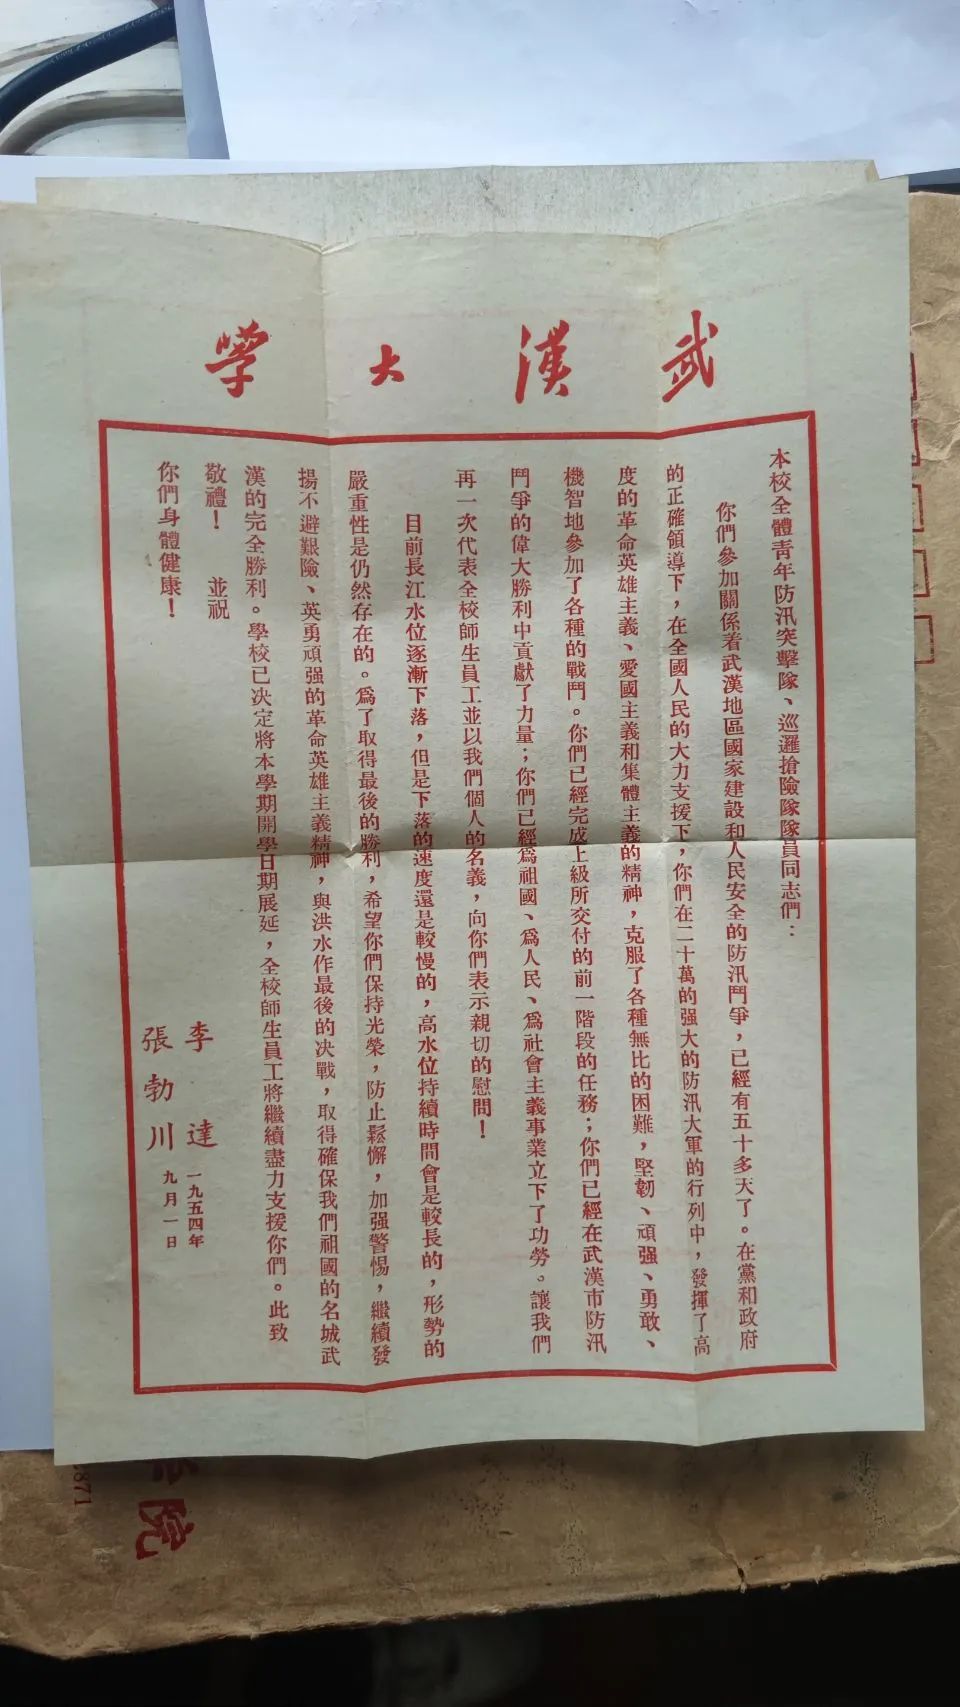 武漢大學
本校全體青年防汛突擊隊、巡邏搶險隊隊員同志們：
你們參加關係着武漢地區國家建設和人民安全的防汛鬥爭，已經有五十多天了。在黨和政府
的正確領導下，在全國人民的大力支援下，你們在二十萬的强大的防汛大軍的行列中，發揮了高
度的革命英雄主義、愛國主義和集體主義的精神，克服了各種無比的困難，堅韌、頑强、勇敢、
機智地參加了各種的戰鬥。你們已經完成上級所交付的前一階段的任務；你們已經在武漢市防汛
鬥爭的偉大勝利中貢獻了力量；你們已經爲祖國、爲人民、爲社會主義事業立下了功勞。讓我們
再一次代表全校師生員工並以我們個人的名義，向你們表示親切的慰問！
目前長江水位逐漸下落，但是下落的速度還是較慢的，高水位持續時間會是較長的，形勢的
嚴重性是仍然存在的。爲了取得最後的勝利，希望你們保持光榮，防止鬆懈，加强警惕，繼續發
揚不避艱險、英勇頑强的革命英雄主義精神，與洪水作最後的决戰，取得確保我們祖國的名城武
漢的完全勝利。學校已决定將本學期開學日期展延，全校師生員工將繼續盡力支援你們。此致
敬禮！ 並祝
你們身體健康！
李達 一九五四年
張勃川 九月一日
院
2871